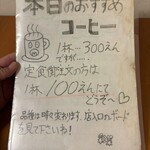 本日のおすすめ
コーヒー
1杯…300えん
ですが…
定食御注文の方は
1杯100えんにて
どうぞ〜♡
品種は時々変わります。店入口のボード
を見て下さいね!